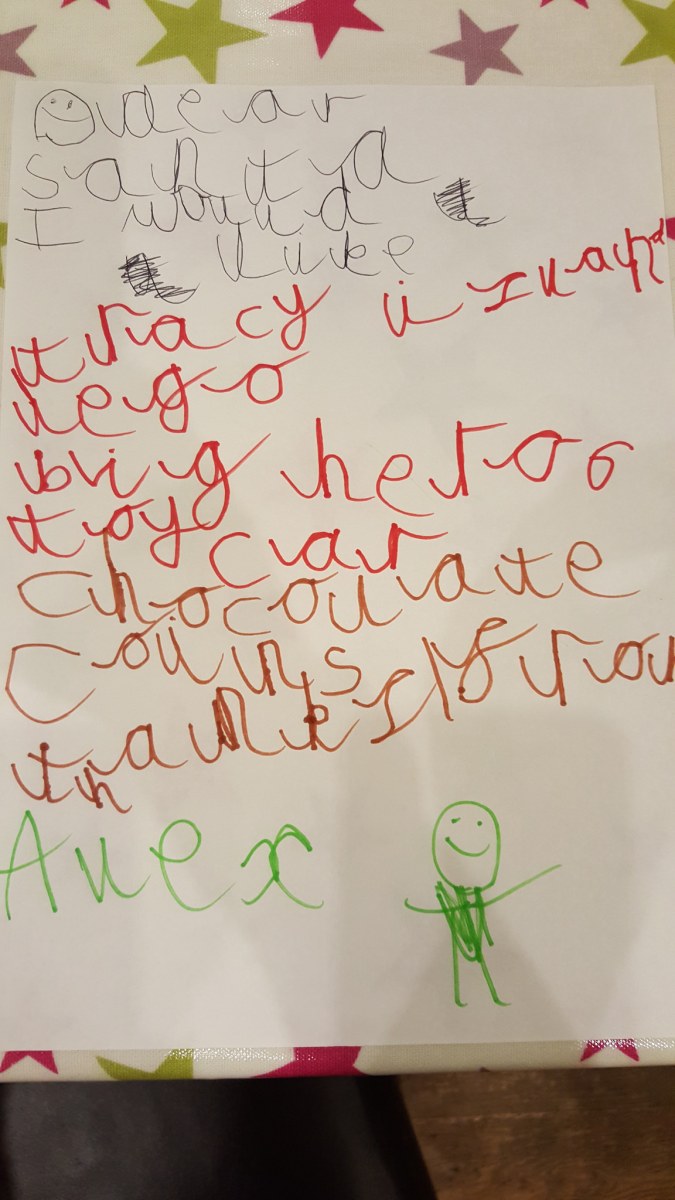 dear
santa
I would
like
tracy island
lego
big hero 6
toy car
chocolate
coins
thanks from
Alex